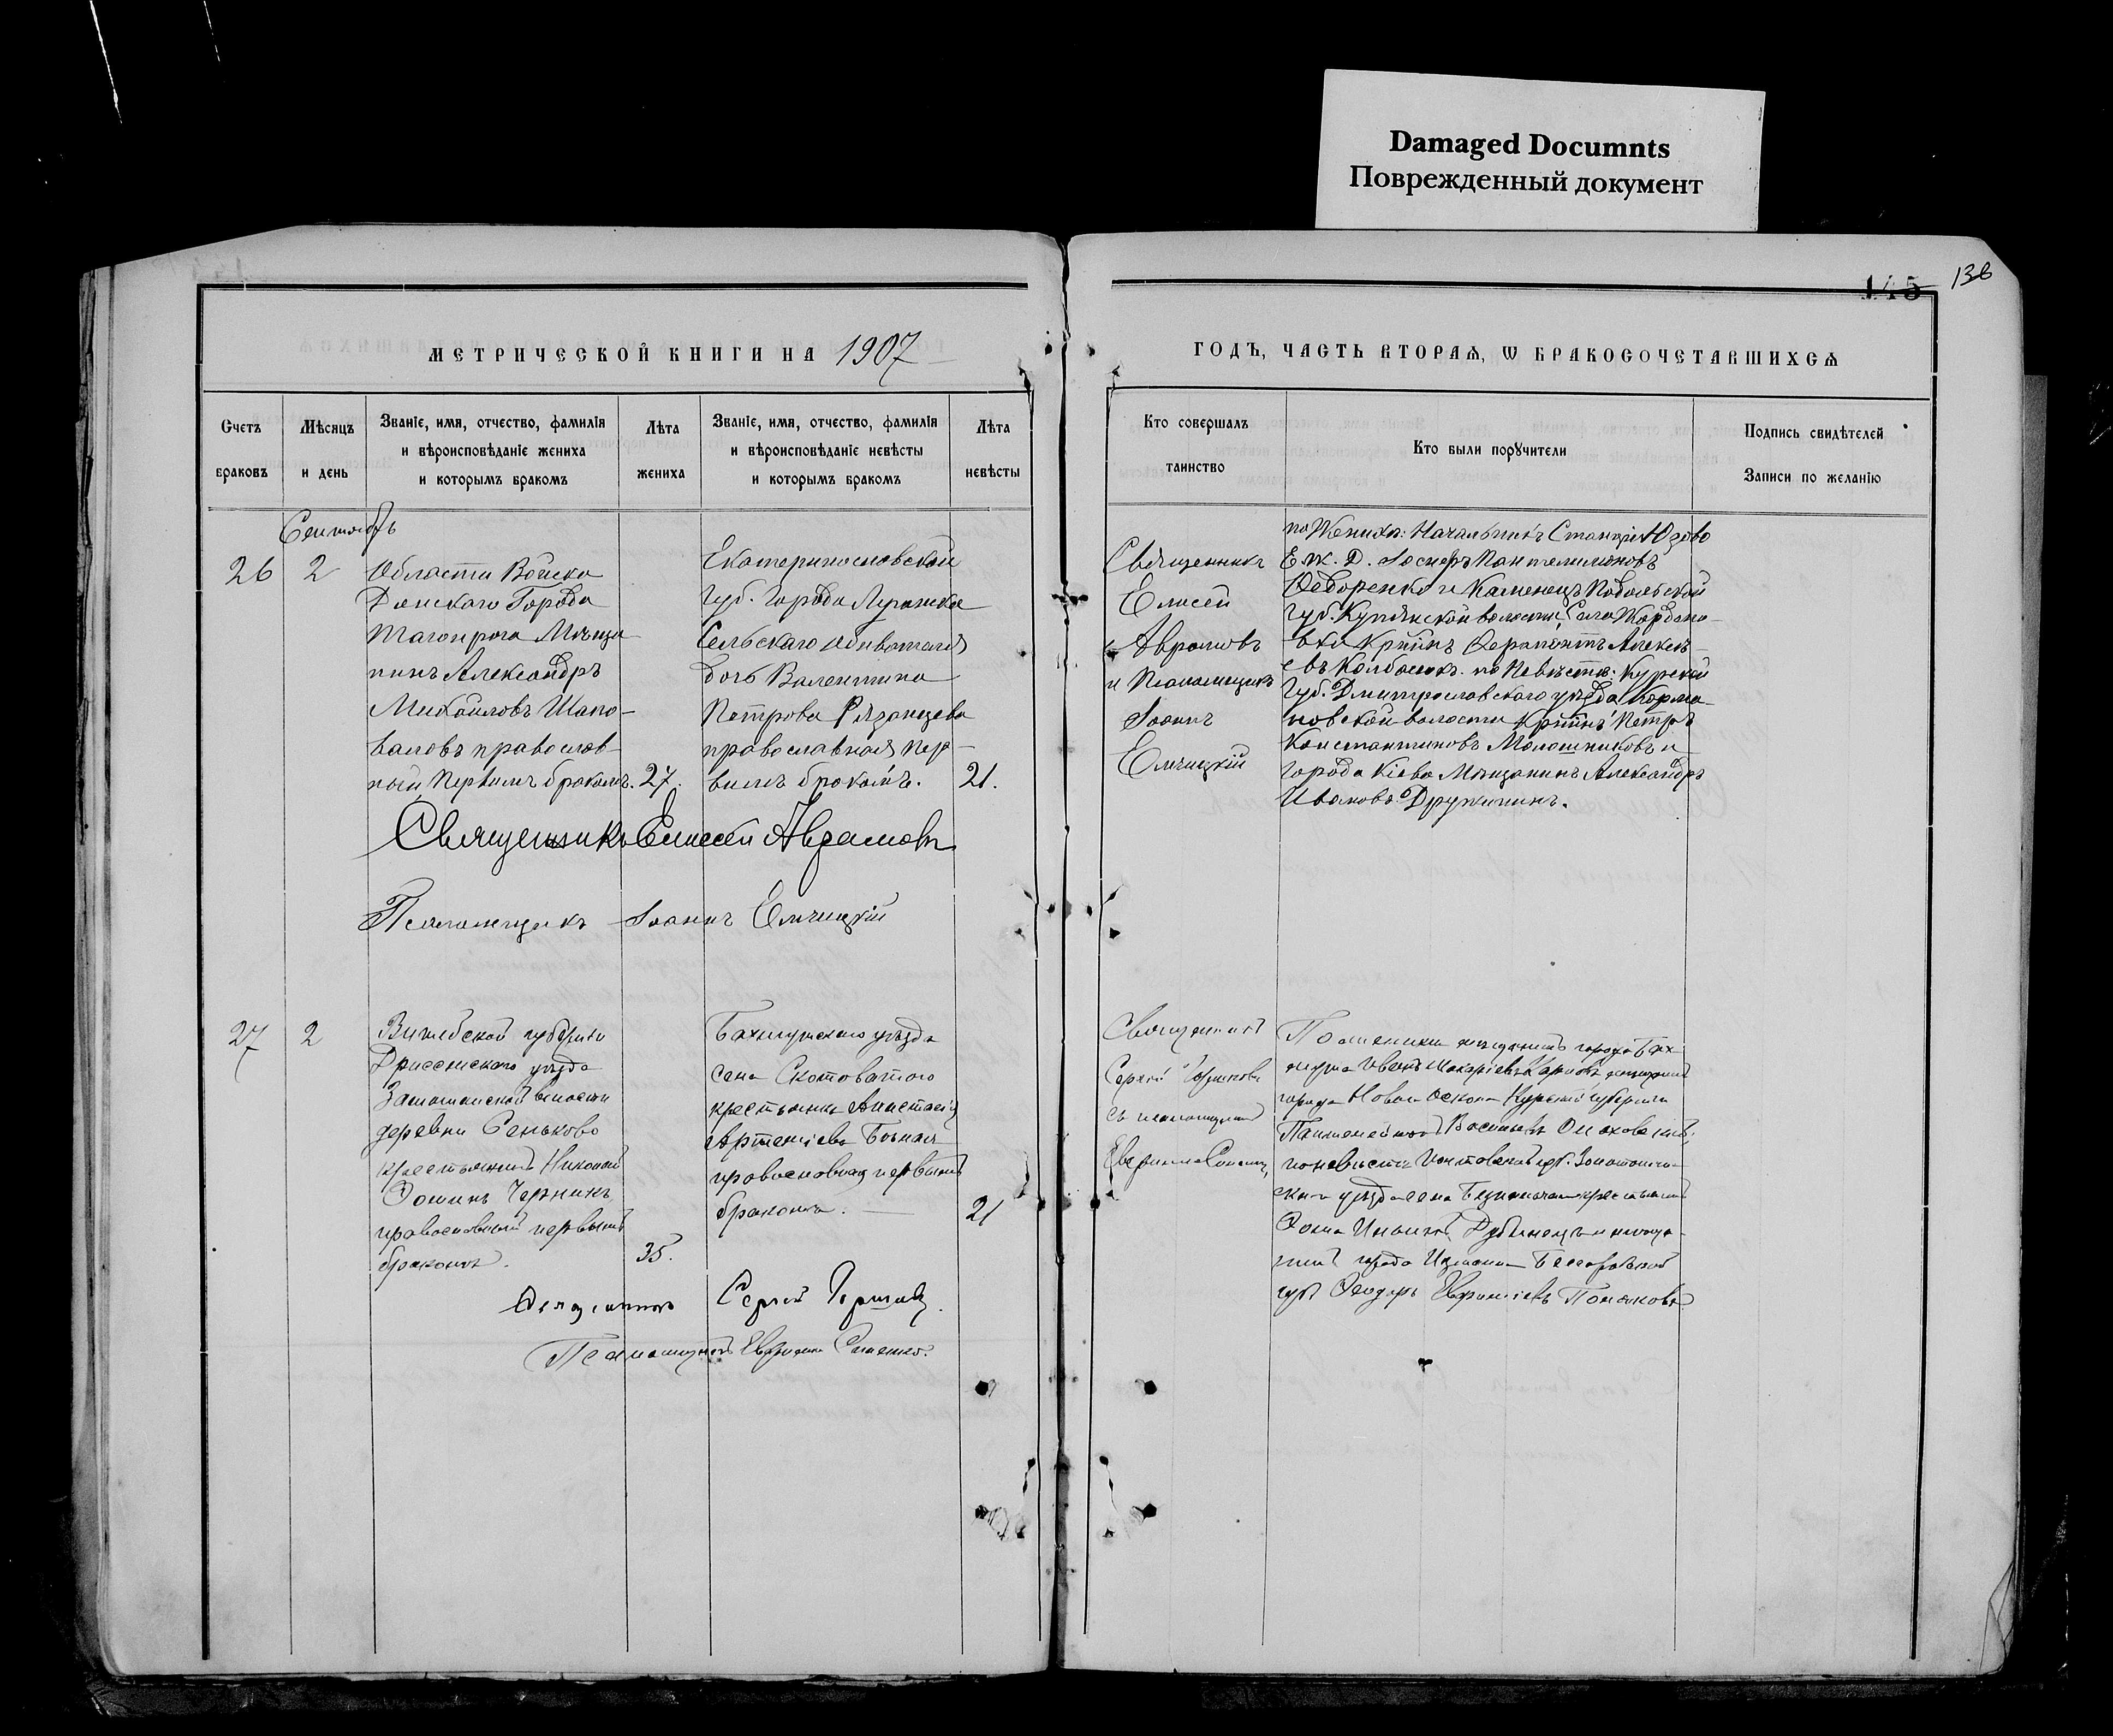 Damaged Documnts
Поврежденный документ
136
145
МЕТРИЧЕСКОЙ КНИГИ НА 1907
ГОДЪ, ЧАСТЬ ВТОРАѦ, Ѡ БРАКОСОЧЕТАВШИХСѦ
Счетъ браковъ
Мѣсяцъ и день
Званіе, имя, отчество, фамилія
и вѣроисповѣданіе жениха
и которымъ бракомъ
Лѣта жениха
Званіе, имя, отчество, фамилія
и вѣроисповѣданіе невѣсты
и которымъ бракомъ
Лѣта невѣсты
Кто совершалъ таинство
Кто были порꙋчители
Подпись свидѣтелей
Записи по желанію
Сентябрь
26
2
Области Войска
Донскаго Города
Таганрога Мѣща-
нинъ Александръ
Михайловъ Шапо-
валовъ православ-
ный, первымъ бракомъ.
27.
Екатеринославской
Губ. Города Луганска
Сельскаго обывателя
дочь Валентина
Петрова Рязанцева
православная пер-
вымъ бракомъ.
21.
Священникъ
Елисей
Аврамовъ
и Псаломщикъ
Іоаннъ
Елчицкій
по Женихѣ: Начальникъ Станціи Юзово
Ек. Ж. Д. Іосифъ Пантелимоновъ
Федоренко и Каменецъ Подольской
Губ. Купянской волости, Села Жордано-
вки Крѣтнъ Ферапонтъ Алексѣ-
евъ Колбасюкъ. по Невѣстѣ: Курской
Губ. Дмитрославскаго уѣзда
новской волости Крѣтнъ Петръ
Константиновъ Молошниковъ и
города Кіева Мѣщанинъ Александръ
Ивановъ Дружининъ.
Священникъ Елисей Аврамовъ
Псаломщикъ Іоаннъ Елчицкій
27
2
Витебской губерніи
Дрисенскаго уѣзда
волости
деревни Сеньково
крестьянинъ Николай
Фоминъ Черникъ,
православный первымъ
бракомъ.
35.
Бахмутскаго уѣзда
села Скотоватого
крестьянка Анастасія
Артеміева Бочная
православная первымъ
бракомъ.
21
Священникъ
Сергій
съ псаломщикомъ
По женихѣ мѣщанинъ города Бах-
мута Иванъ Макаріевъ Карповъ
города Новаго Оскола Курской губерніи
Василіевъ
по невѣстѣ Полтавской губ. Золотонош-
скаго уѣзда села крестьянинъ
Фома
города Измаила Бессарабской
губ. Феодоръ Поляковъ
Священникъ Сергій
Псаломщикъ